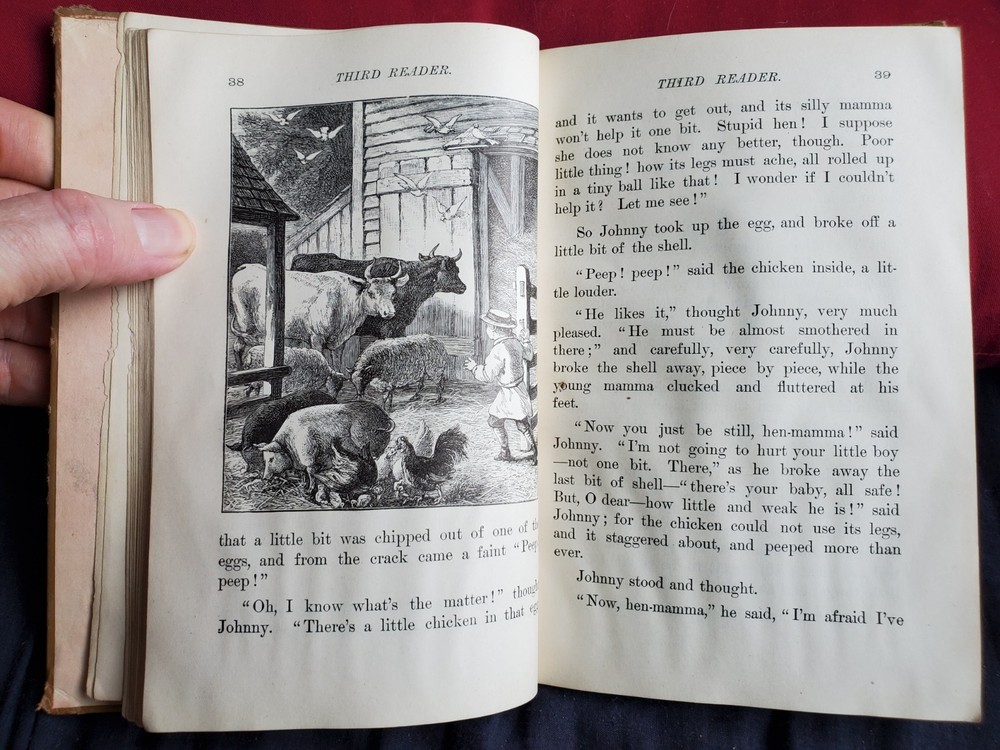 38
THIRD READER.
that a little bit was chipped out of one of
eggs, and from the crack came a faint
peep!”
“Oh, I know what’s the matter!”
Johnny. “There’s a little chicken in that
THIRD READER.
39
and it wants to get out, and its silly mamma
won’t help it one bit. Stupid hen! I suppose
she does not know any better, though. Poor
little thing! how its legs must ache, all rolled up
in a tiny ball like that! I wonder if I couldn’t
help it? Let me see!”
So Johnny took up the egg, and broke off a
little bit of the shell.
“Peep! peep!” said the chicken inside, a lit-
tle louder.
“He likes it,” thought Johnny, very much
pleased. “He must be almost smothered in
there;” and carefully, very carefully, Johnny
broke the shell away, piece by piece, while the
young mamma clucked and fluttered at his
feet.
“Now you just be still, hen-mamma!” said
Johnny. “I’m not going to hurt your little boy
—not one bit. There,” as he broke away the
last bit of shell—“there’s your baby, all safe!
But, O dear—how little and weak he is!” said
Johnny; for the chicken could not use its legs,
and it staggered about, and peeped more than
ever.
Johnny stood and thought.
“Now, hen-mamma,” he said, “I’m afraid I’ve